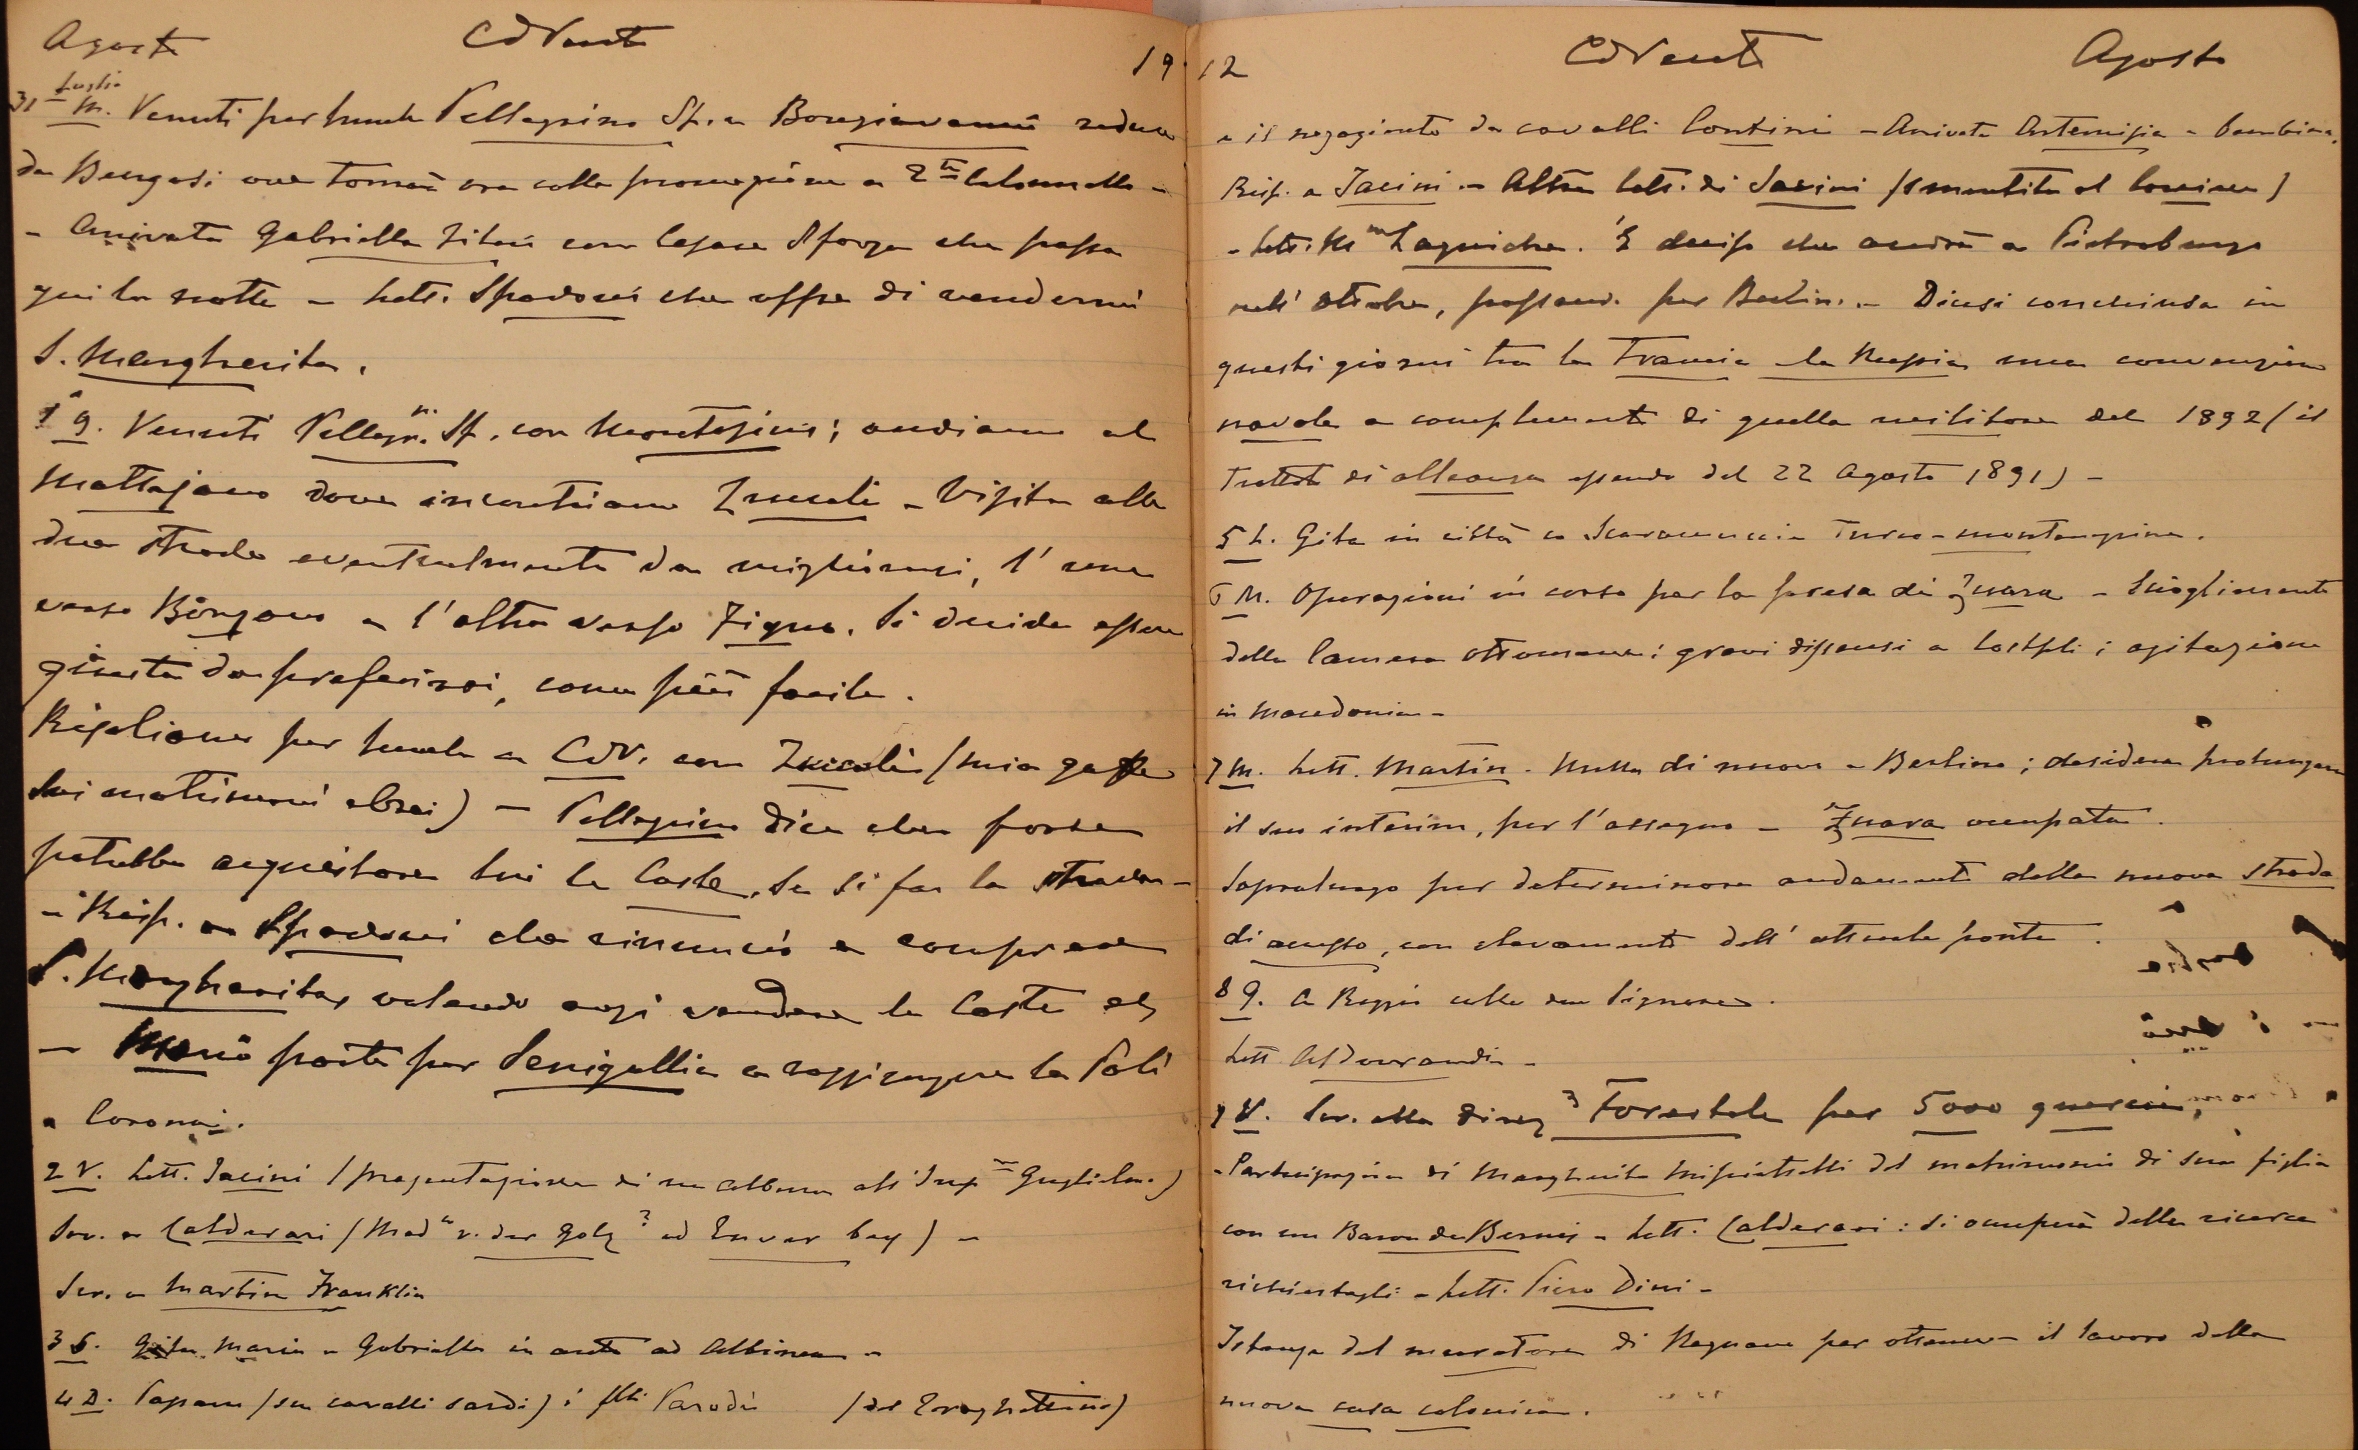 Agosto CdVento 19
31 Luglio
M. Venuti per tunnel Pellegrino Sf. e Bongiovanni reduce
da Bengasi ove tornerà ora colla promozione a 2° Colonnello -
- Arrivata Gabriella con Cesare Sforza che passa
qui la notte - Lett. Spadoni che offre di vendermi
S. Margherita.
1° G. Venuti Pellegr. Sf. con ; andiamo al
Mattajano dove incontriamo Zuccoli - Visita alle
due strade eventualmente da migliorarsi, l'una
verso Borzano e l'altra verso . Si decide essere
questa da preferirsi, come più facile.
per a CdV. con Zuccoli (mia gaffe
sui matrimoni ebrei) - Pellegrino dice che forse
potrebbe acquistare lui le Coste, se si fa la strada -
- Risp. a Spadoni che rinuncio a comprare
S. Margherita, volendo anzi vendere le Coste
- parte per Senigallia a raggiungere la
a
2 V. Lett. Jacini (presentazione di un album all'Imp Guglielmo)
Scr. a Calderari (Mad v. der Golz? ed Enver bey) -
Scr. a Martin Franklin
3 S. Gita Maria e Gabriella in auto ad Albinea -
4 D. (su cavalli sardi) i flli Parodi
12 CdVento Agosto
e il negoziante da cavalli Contini - Arrivata Artemisia e bambina.
Risp. a Jacini - Altra lett. di Jacini (smentita al )
- Lett. M . È deciso che andrà a Pietroburgo
nell'ottobre, passando per Berlino. - Dicesi conchiusa in
questi giorni tra la Francia e la Russia una convenzione
navale a complemento di quella militare del 1892 (il
Trattato di alleanza essendo del 22 Agosto 1891) -
5 L. Gita in città - Scaramuccia Turco-montenegrina.
6 M. Operazioni in corso per la presa di Zuara - Scioglimento
della Camera ottomana: gravi dissensi a Costpli; agitazione
in Macedonia -
7 M. Lett. Martin. Nulla di nuovo a Berlino; desidera prolungare
il suo interim, per l'assegno - Zuara occupata.
Sopraluogo per determinare andamento della nuova strada
di accesso, con elevamento dell'attuale ponte.
8 G. A Reggio colle due Signore.
Lett Aldovrandi -
9 V. Scr. alla Direz Forestale per 5000 quercie,
- Partecipazione di Margherita del matrimonio di sua figlia
con un Baron de Bernis - Lett. Calderari: si occuperà delle ricerce
richiestegli - Lett. Piero Dini -
Istanza del muratore di per ottenere il lavoro della
nuova casa colonica.